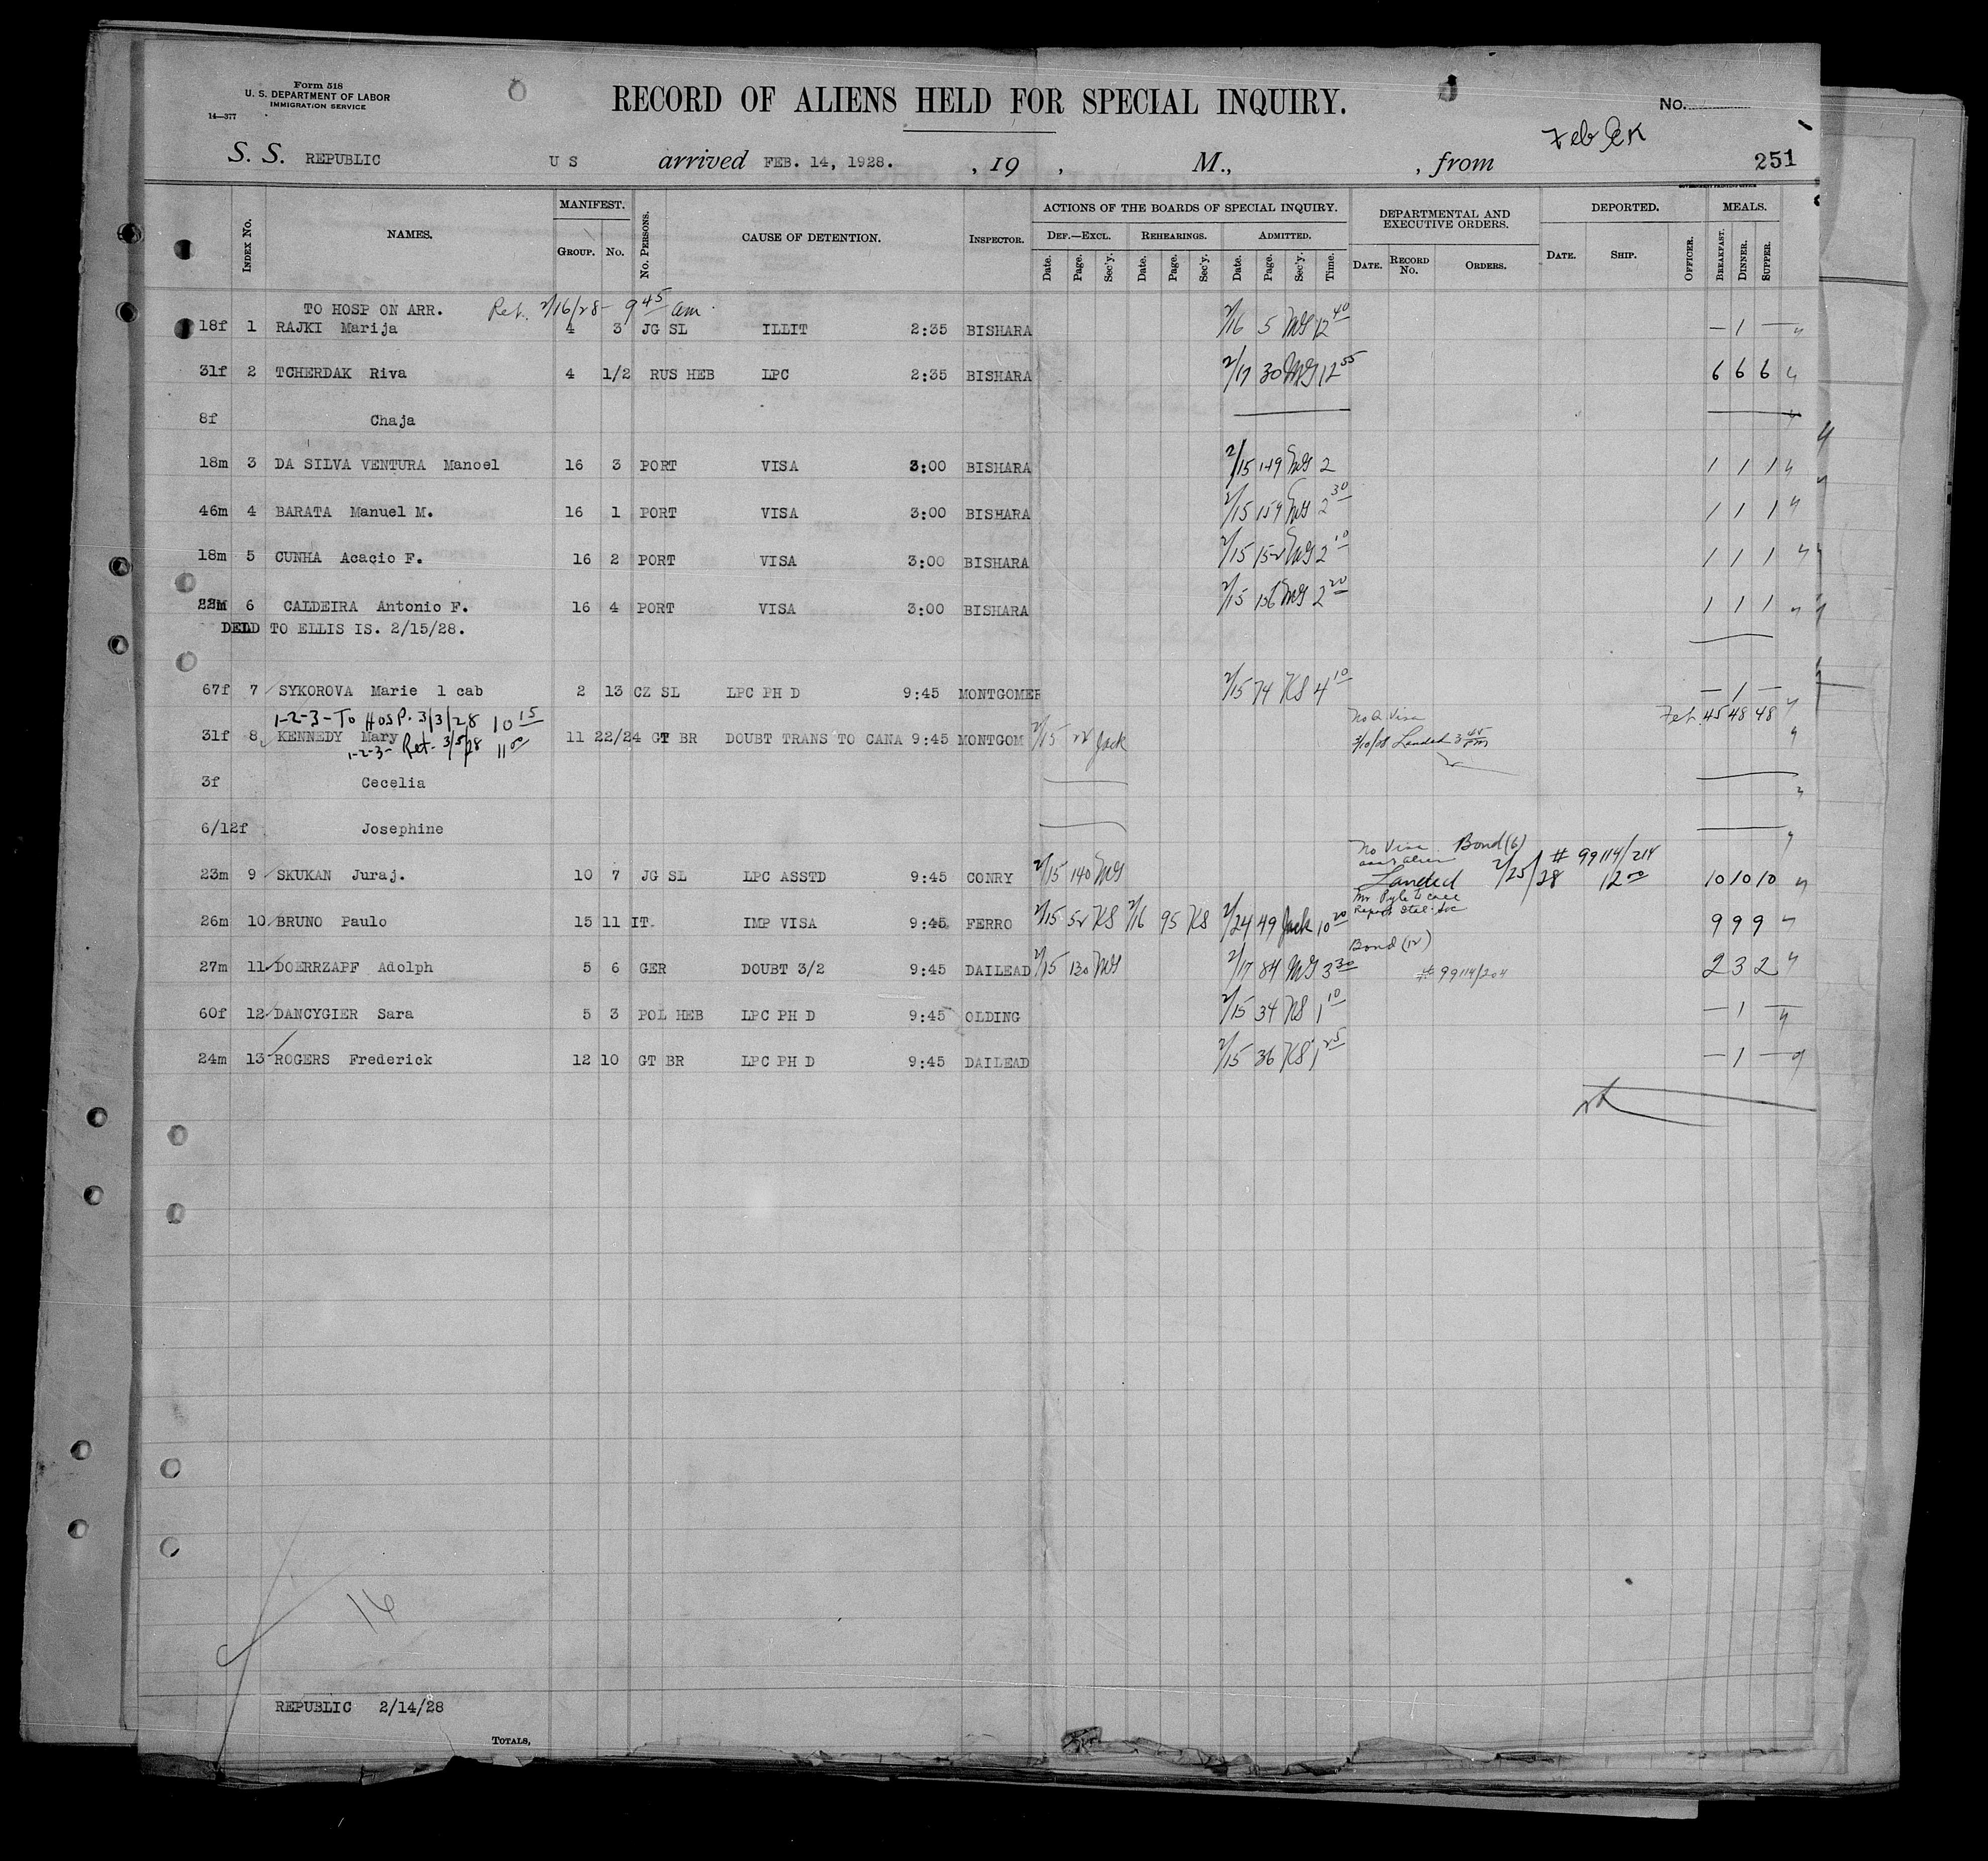 Form 518
U. S. DEPARTMENT OF LABOR
IMMIGRATION SERVICE
14—377
RECORD OF ALIENS HELD FOR SPECIAL INQUIRY.
No.
S. S. REPUBLIC U S arrived FEB. 14, 1928. , 19 , M., , from Feb 251
GOVERNMENT PRINTING OFFICE
INDEX NO. NAMES. MANIFEST. GROUP. NO. NO. PERSONS. CAUSE OF DETENTION. INSPECTOR. ACTIONS OF THE BOARDS OF SPECIAL INQUIRY. DEF.—EXCL. REHEARINGS. ADMITTED. DEPARTMENTAL AND EXECUTIVE ORDERS. DEPORTED. MEALS.
Date. Page. Sec'y. Date. Page. Sec'y. Date. Page. Sec'y. Time. DATE. RECORD NO. ORDERS. DATE. SHIP. OFFICER. BREAKFAST. DINNER. SUPPER.
TO HOSP ON ARR. Ret. 2/16/28- 9 45 am.
18f 1 RAJKI Marija 4 3 JG SL ILLIT 2:35 BISHARA 2/16 5 MG 12 40 — 1 —
31f 2 TCHERDAK Riva 4 1/2 RUS HEB LPC 2:35 BISHARA 2/17 30 MG 12 55 6 6 6
8f Chaja
18m 3 DA SILVA VENTURA Manoel 16 3 PORT VISA 3:00 BISHARA 2/15 149 MG 2 1 1 1
46m 4 BARATA Manuel M. 16 1 PORT VISA 3:00 BISHARA 2/15 159 MG 2 30 1 1 1
18m 5 CUNHA Acacio F. 16 2 PORT VISA 3:00 BISHARA 2/15 152 MG 2 10 1 1 1
22M 6 CALDEIRA Antonio F. 16 4 PORT VISA 3:00 BISHARA 2/15 156 MG 2 20 1 1 1
DELD TO ELLIS IS. 2/15/28.
67f 7 SYKOROVA Marie 1 cab 2 13 CZ SL LPC PH D 9:45 MONTGOMER 2/15 74 KS 4 10 — 1 —
1-2-3- To Hosp. 3/3/28 10 15
31f 8 KENNEDY Mary 11 22/24 GT BR DOUBT TRANS TO CANA 9:45 MONTGOM 2/15 22 Jack No Q Visa Feb. 45 48 48
1-2-3- Ret. 3/5/28 11 00 3/10/28 Landed 3 45 PM
3f Cecelia
6/12f Josephine
No Visa Bond (6) # 99114/214
23m 9 SKUKAN Juraj. 10 7 JG SL LPC ASSTD 9:45 CONRY 2/15 140 MG Landed 2/25/28 12 00 10 10 10
26m 10 BRUNO Paulo 15 11 IT. IMP VISA 9:45 FERRO 2/15 52 KS 2/16 95 KS 2/24 49 Jack 10 20 9 9 9
Bond (12)
27m 11 DOERRZAPF Adolph 5 6 GER DOUBT 3/2 9:45 DAILEAD 2/15 130 MG 2/17 84 MG 3 30 # 99114/204 2 3 2
60f 12 DANCYGIER Sara 5 3 POL HEB LPC PH D 9:45 OLDING 2/15 34 KS 1 10 — 1 —
24m 13 ROGERS Frederick 12 10 GT BR LPC PH D 9:45 DAILEAD 2/15 36 KS 1 25 — 1 —
16
REPUBLIC 2/14/28
TOTALS,